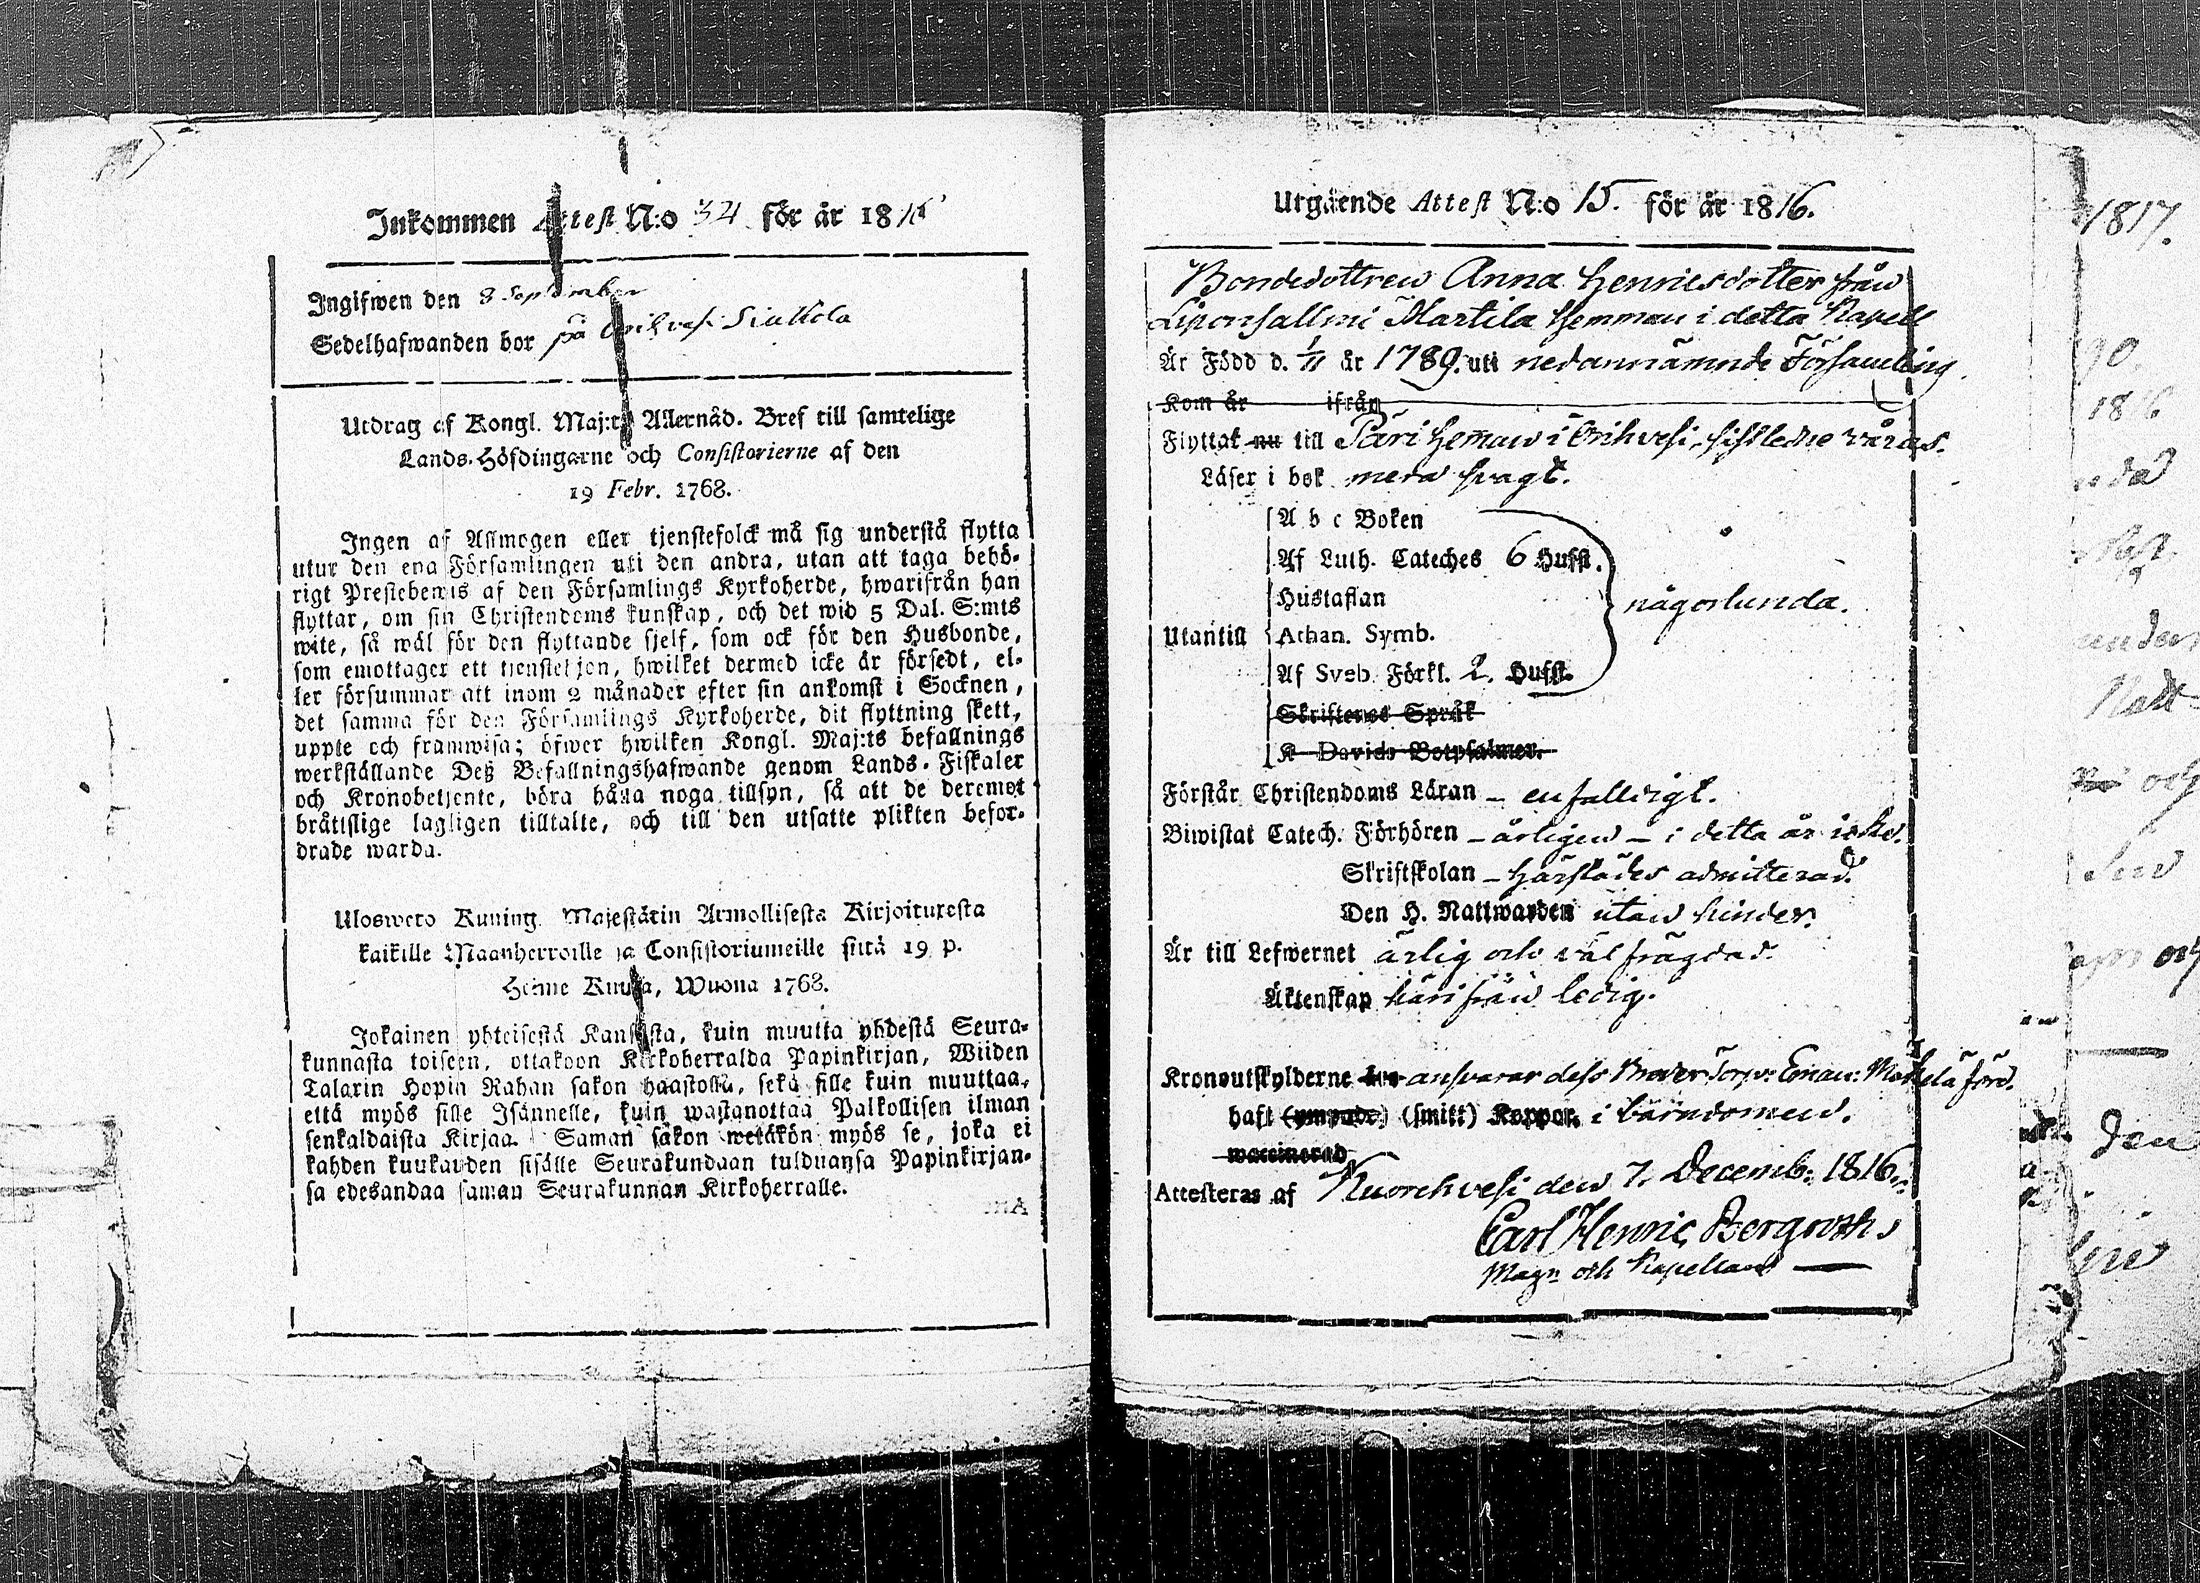 Inkommen Attest N:o 34 för år 18
Ingifwen den 8 September
Sedelhafwanden bor på Orihvesi Siukola
Utdrag af Kongl. Maj:ts Allernåd. Bref till samtelige
Lands-Höfdingarne och Consistorierne af den
19 Febr. 1768.
Ingen af Allmogen eller tjenstefolck må sig understå flytta
utur den ena Församlingen uti den andra, utan att taga behö-
rigt Prestebewis af den Församlings Kyrkoherde, hwarifrån han
flyttar, om sin Christendoms kunskap, och det wid 5 Dal. S:mts
wite, så wäl för den flyttande sjelf, som ock för den Husbonde,
som emottager ett tjenstehjon, hwilket dermed icke är försedt, el-
ler försummar att inom 2 månader efter sin ankomst i Socknen,
det samma för den Församlings Kyrkoherde, dit flyttning skett,
uppte och framwisa; öfwer hwilken Kongl. Maj:ts befallnings
werkställande Deß Befallningshafwande genom Lands-Fiskaler
och Kronobetjente, böra hålla noga tillsyn, så att de deremot
bråttslige lagligen tilltalte, och till den utsatte plikten befor-
drade warda.
Uloswero Kuning. Majestätin Armollisesta Kirjoituxesta
kaikille Maanherroille ja Consistoriumeille siitä 19 p.
Helme Kuusa, Wuona 1768.
Jokainen yhteisestä Kansasta, kuin muutta yhdestä Seura-
kunnasta toiseen, ottakoon Kirkoherralda Papinkirjan, Wiiden
Talarin Hopia Rahan sakon haastolla, sekä sille kuin muuttaa,
että myös sille Isännelle, kuin wastanottaa Palkollisen ilman
senkaldaista Kirjaa. Saman sakon wetäkön myös se, joka ei
kahden kuukauden sisälle Seurakundaan tulduansa Papinkirjan-
sa edesandaa saman Seurakunnan Kirkoherralle.
Utgående Attest N:o 15. för år 1816.
Bondedottren Anna Henricsdotter från
Liponsallmi Martila Hemman i detta Kapell
Är Född d. 1/11 år 1789. uti nedannämnde Församling.
Kom år ifrån
Flyttat nu till Päri Hemman i Orihvesi, sistledne våras.
Läser i bok mera svagt.
A b c Boken
Af Luth. Cateches 6 Hufst.
Hustaflan
någorlunda.
Utantill Athan. Symb.
Af Sveb. Förkl. 2. Hufst.
Skriftenes Språk
K Davids Botpsalmer.
Förstår Christendoms Läran – enfalldigt.
Biwistat Catech. Förhören – årligen – i detta år icke.
Skriftskolan – härstädes admitterad.
Den H. Nattwarden utan hinder.
Är till Lefwernet ärlig och väl frägdad.
Äktenskap härifrån ledig.
Kronoutskylderne ansvarar dess Broder Torp: Eman: Mäkelä före.
haft (ympade) (smitt) Koppor. i barndomen.
waccinerad
Attesteras af Kuorehvesi den 7. Decemb: 1816.
Carl Henric Bergroth,
Magr och Kapellan
1817.
90.
1816
och
Den